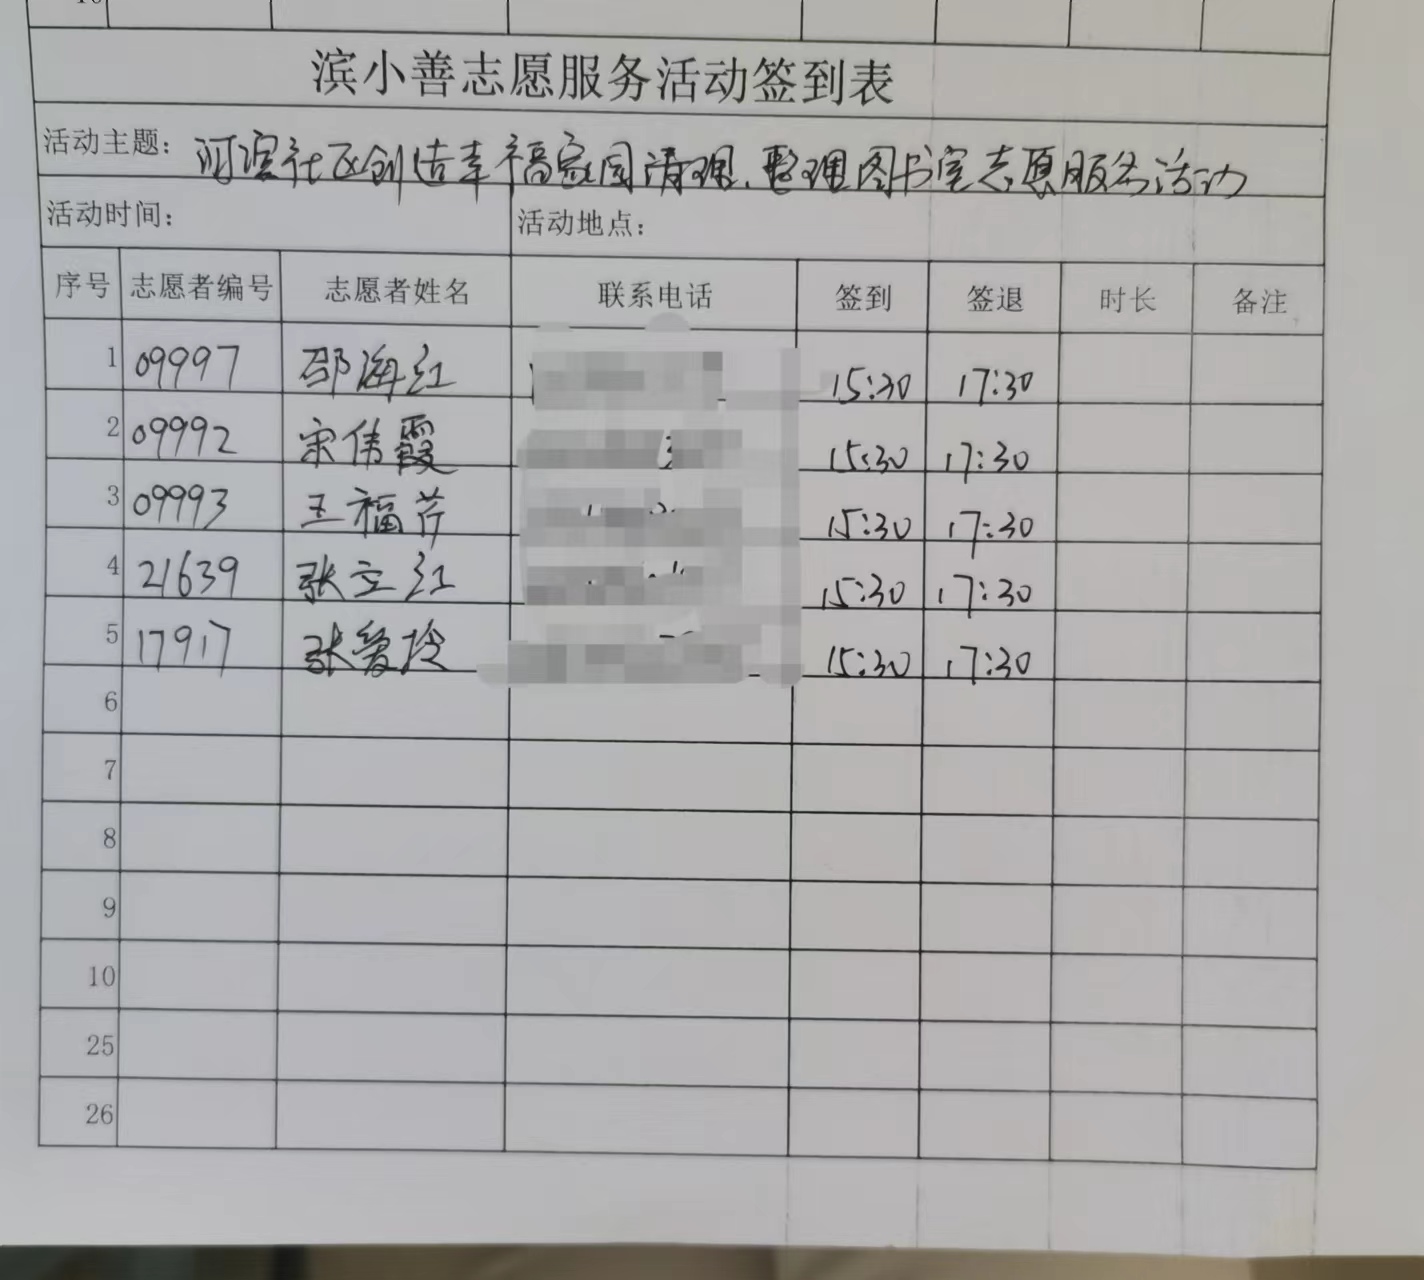 滨小善志愿服务活动签到表
活动主题: 河滨社区创造幸福家园清理、整理图书室志愿服务活动
活动时间: 活动地点:
序号 志愿者编号 志愿者姓名 联系电话 签到 签退 时长 备注
1 09997 邵海红 15:30 17:30
2 09992 宋伟霞 15:30 17:30
3 09993 王福芹 15:30 17:30
4 21639 张立红 15:30 17:30
5 17917 张爱玲 15:30 17:30
6
7
8
9
10
25
26